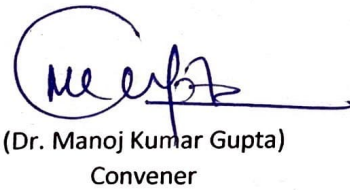 (Dr. Manoj Kumar Gupta)
Convener